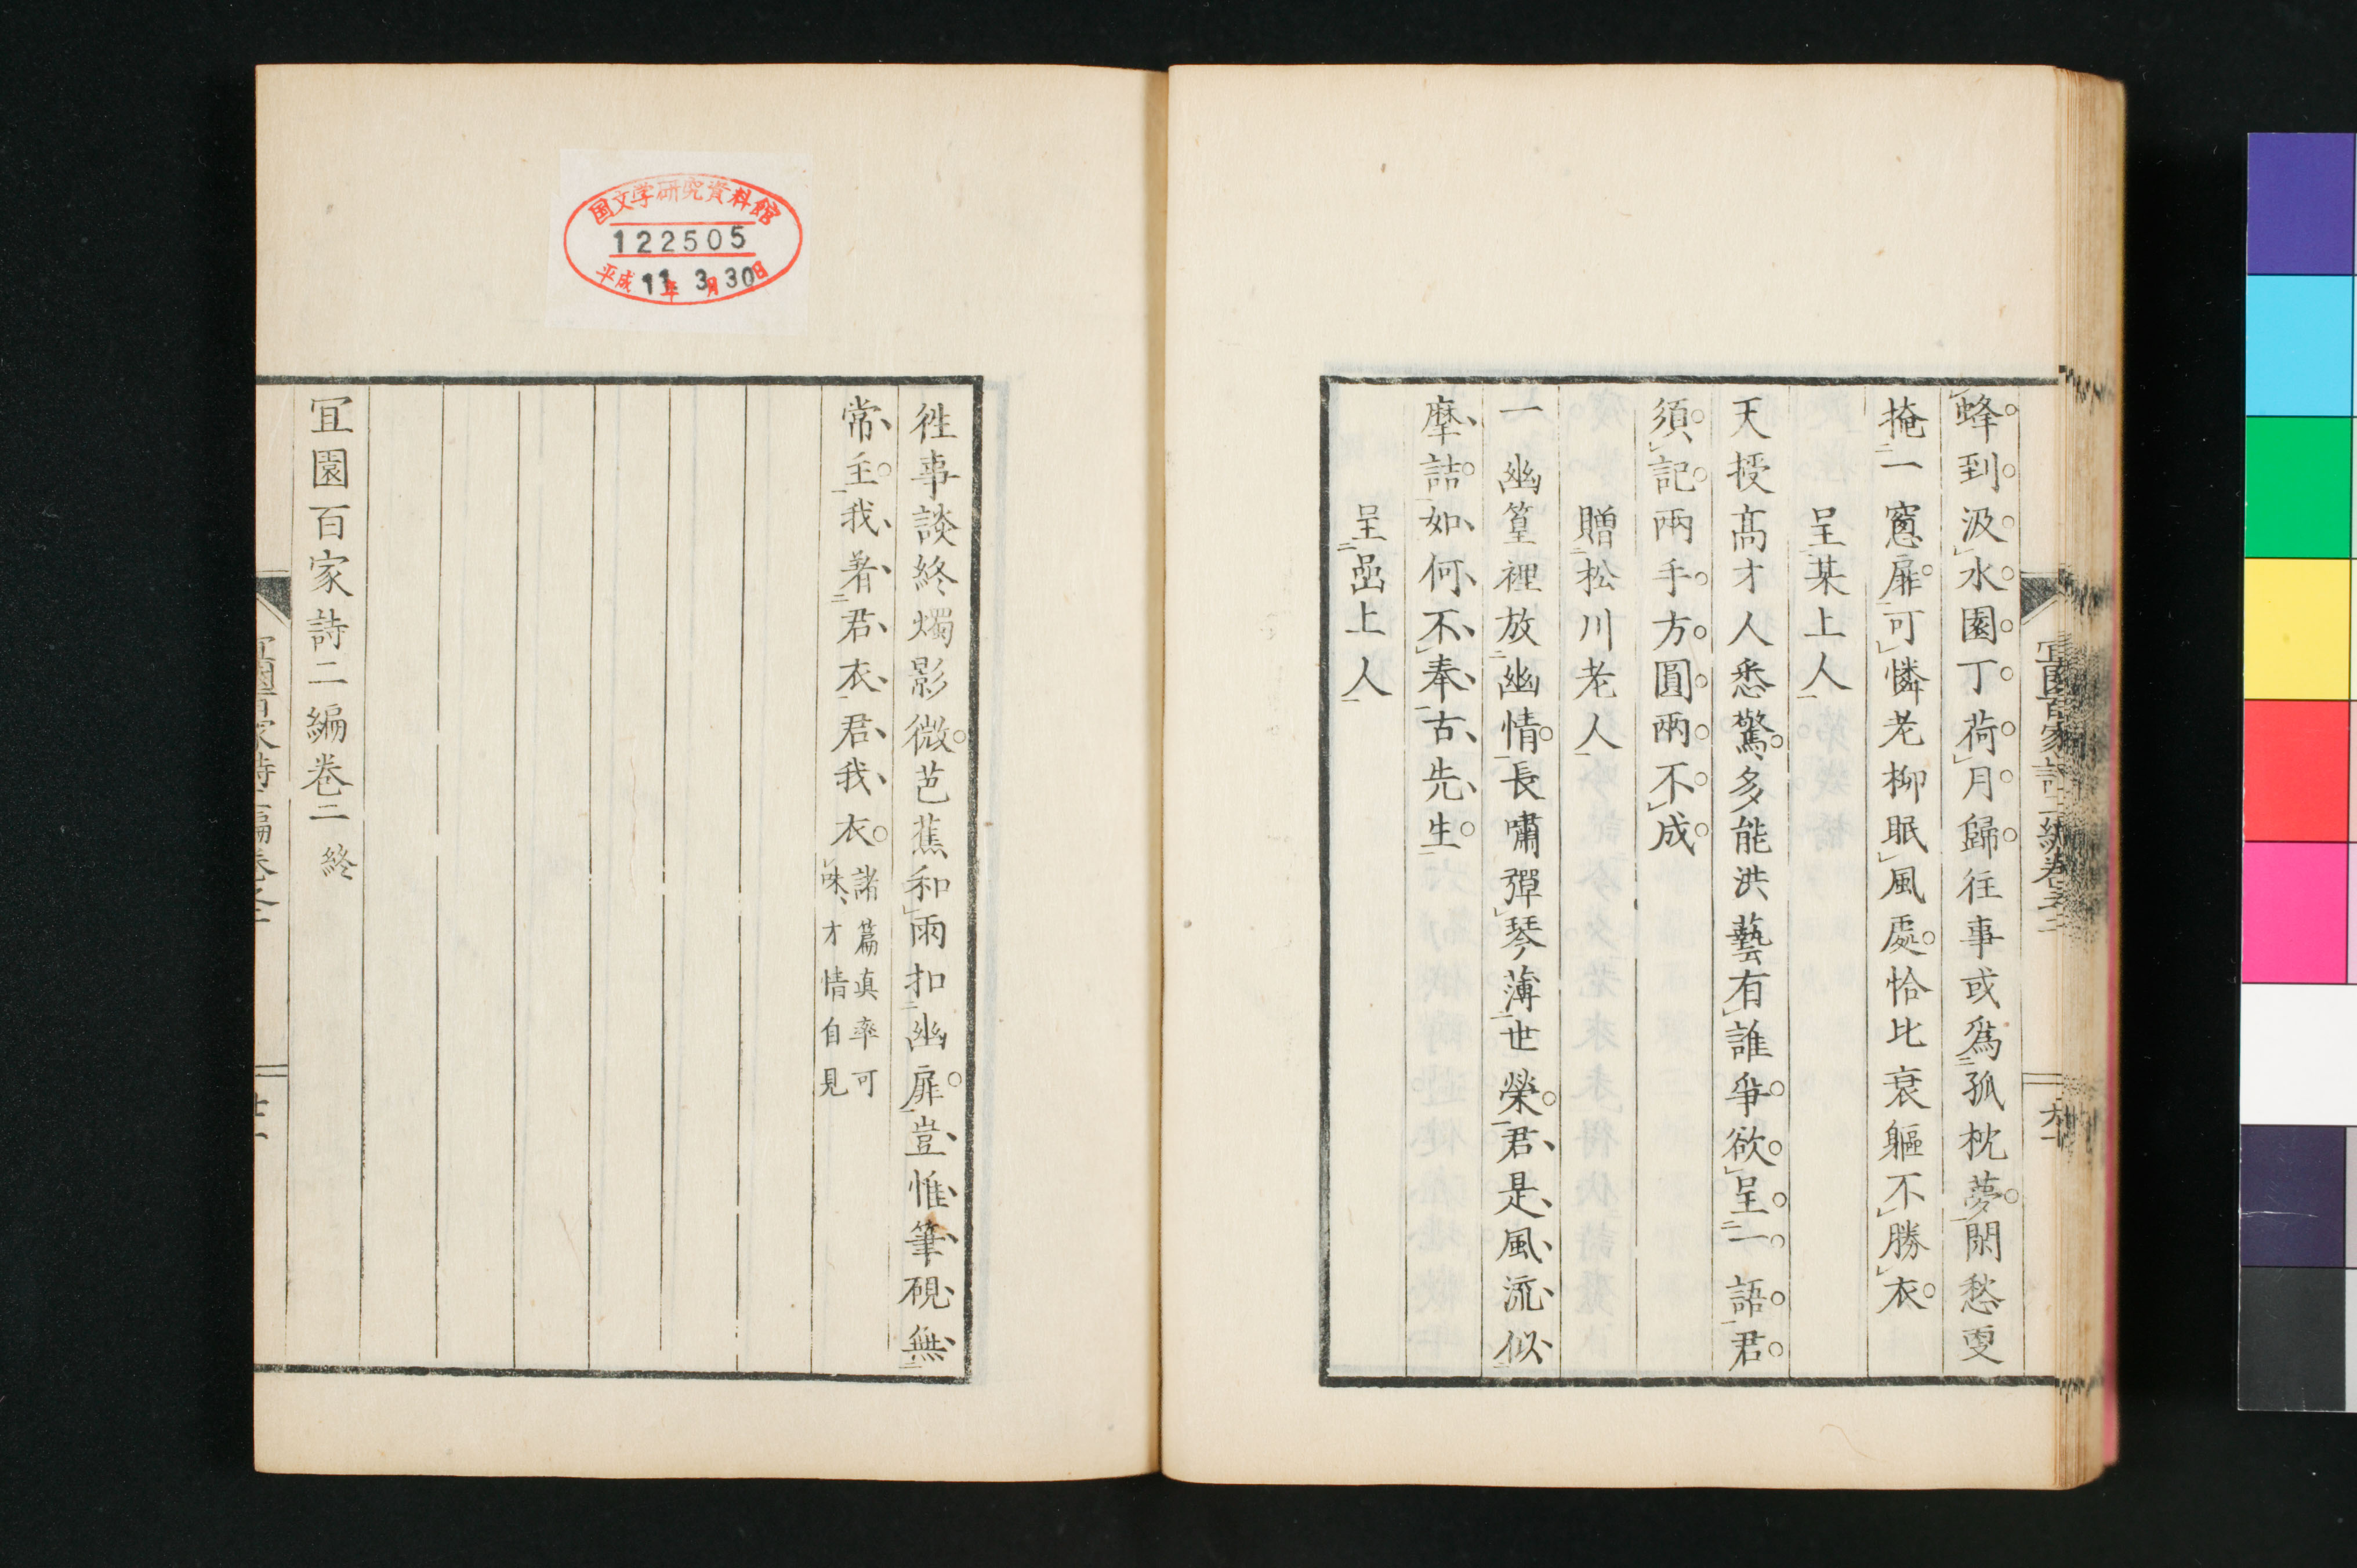 蜂到汲水園丁荷月歸往事或爲孤枕夢閑愁更
掩一窻扉可憐老柳眠風處恰比衰軀不勝衣
呈某上人
天授高才人悉驚多能洪藝有誰爭欲呈一語君
須記兩手方圓兩不成
贈松川老人
一幽篁裡放幽情長嘯彈琴薄世榮君是風流似
摩詰如何不奉古先生
呈嵒上人
徃事談終燭影微芭蕉和雨扣幽扉豈惟筆硯無
常主我著君衣君我衣 諸篇真率可
味才情自見
宜園百家詩二編卷二終
国文学研究資料館
122505
平成11年3月30日